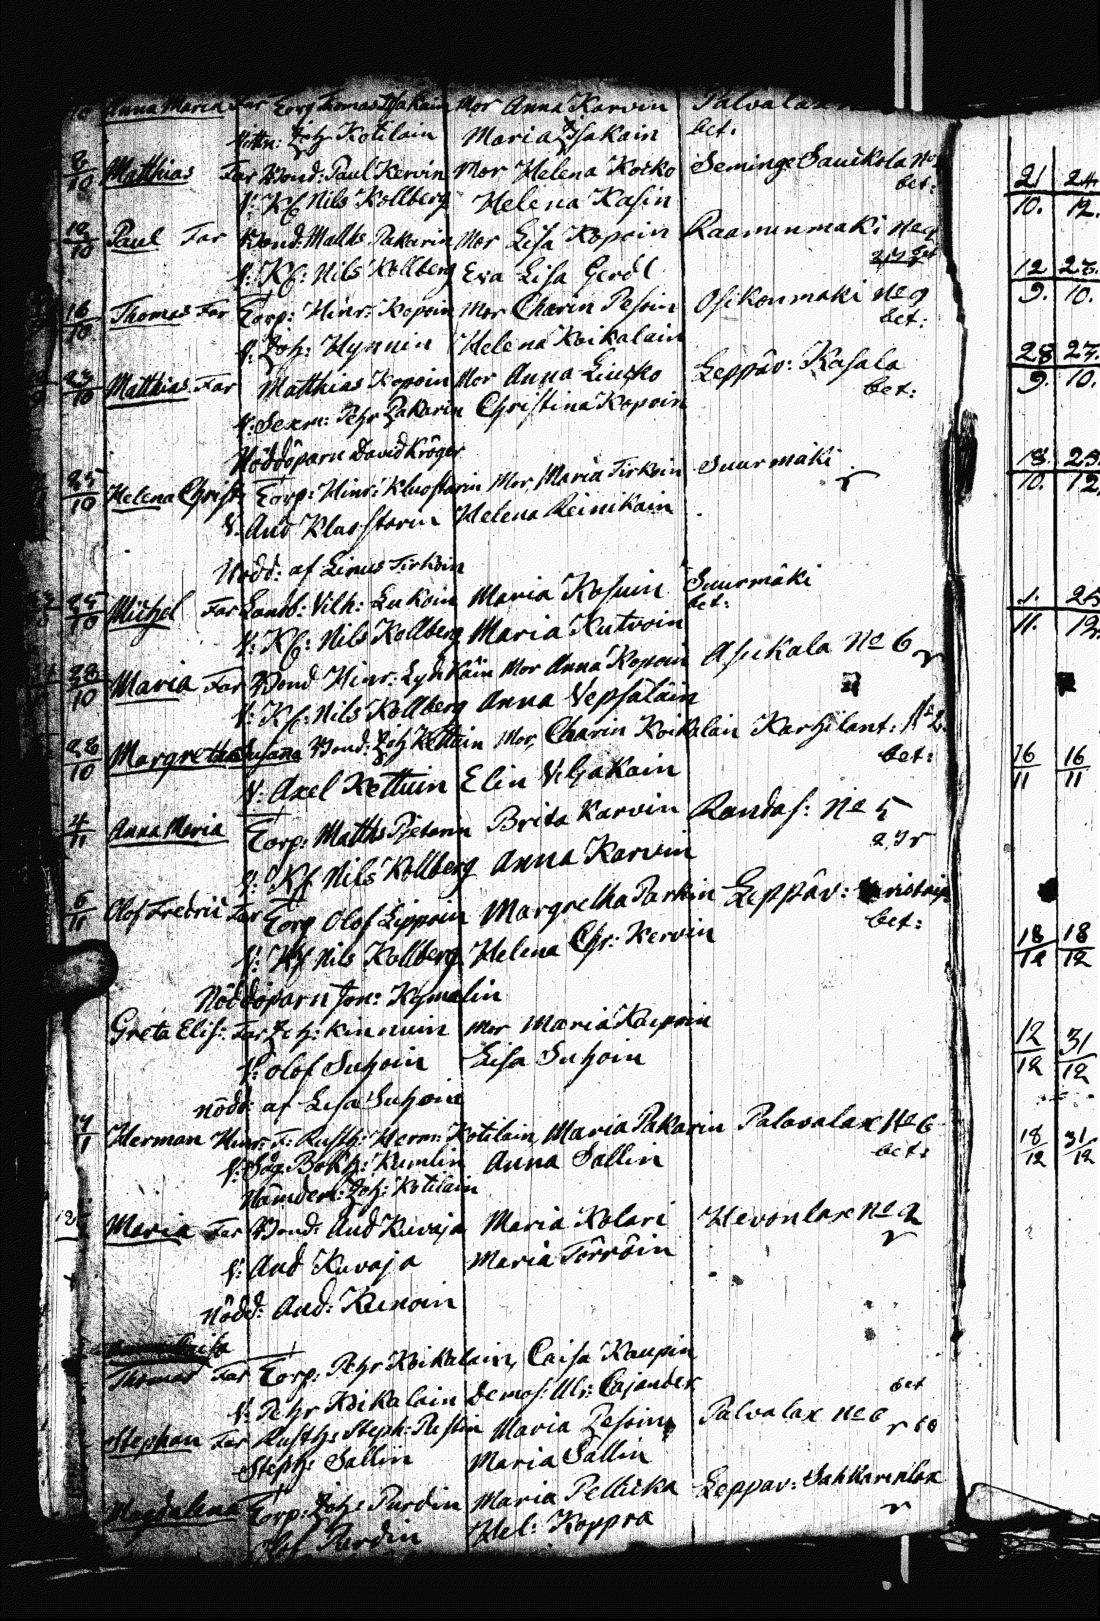 Anna Maria Far Torp Thomas Isakain Mor Anna Karvin Palvalax
Vittn: Joh: Kotilain Maria Isakain bet:
8/10 Matthias Far Bond: Paul Kervin Mor Helena Kocko Seminge Sauikola No
V: Kf Nils Kollberg Helena Kasin bet:
12/10 Paul Far Bond: Matths Pakarin Mor Lisa Kopoin Raamunmaki No 9
V: Kf: Nils Kollberg Eva Lisa Geröl
16/10 Thomas Far Torp: Hinr: Kopoin Mor Charin Pesoin Osikonmaki No 9
V: Joh: Hynnin Helena Koikalain bet:
23/10 Matthias Far Matthias Kopoin Mor Anna Liucko Leppäv: Kasala
V: Sexm: Pehr Pakarin Christina Kopoin bet:
Nöddöparn David Kröger
25/10 Helena Christ: Torp: Hinr: Kluostarin Mor Maria Tirkoin Suurmäki
V. And Kluostarin Helena Reinikain r
Nödd: af Linus Tirkoin
25/10 Michel Far Landb: Vilh: Lukoin Maria Kosuin Suurmäki
V: Kf: Nils Kollberg Maria Kutvoin bet:
28/10 Maria Far Bond Hinr: Lyhikäin Mor Anna Kopoin Asikala No 6
V: Kf: Nils Kollberg Anna Vepsäläin r
28/10 Margretha Susana Bond: Joh Kettuin Mor, Charin Koikalain Karhilant: No 2.
V: Axel Kettuin Elin Viljakain bet:
4/11 Anna Maria Torp: Matths Pietarin Brita Karvin Randas: No 5
V: Kf Nils Kollberg Anna Karvin
6/11 Olof Fredric Far Torp Olof Lippoin Margretha Parkin Leppäv:
V: Kf Nils Kollberg Helena Chr: Kervin bet:
Nöddöparn Jon: Kymalin
Greta Elis: Far Joh: Kinnuin Mor Maria Kaipoin
V: Olof Suhoin Lisa Suhoin
nödd: af Lisa Suhoin
Herman Hinr: F: Rusth: Herm: Kotilain, Maria Pakarin Palavalax No 6
V: Bokh: Kumlin Anna Sallin bet:
Nämdem: Joh: Kotilain
Maria Far Bond: And Kuvaja Maria Kolari Hevonlax No 2
V: And Kuvaja Maria Törröin r
Nödd: And: Kunoin
Thomas Far Torp: Pehr Koikalain, Caisa Kaupin
V: Pehr Koikalain Demos: Ulr: Cajander bet
Stephan Far Rusth: Steph: Pestin Maria Pesoin Palvalax No 6
Steph: Sallin Maria Sallin
Magdalena Torp: Joh: Purdin Maria Pellicka Leppäv: Sahkarinlax
Olof Purdin Hel: Koppra r
21/10. 24/12.
12/9. 27./10.
28/9. 27./10.
18/10. 25./12.
1./11. 25/12.
16/11 16/11
18/12 18/12
12/12 31/12
18/12 31/12